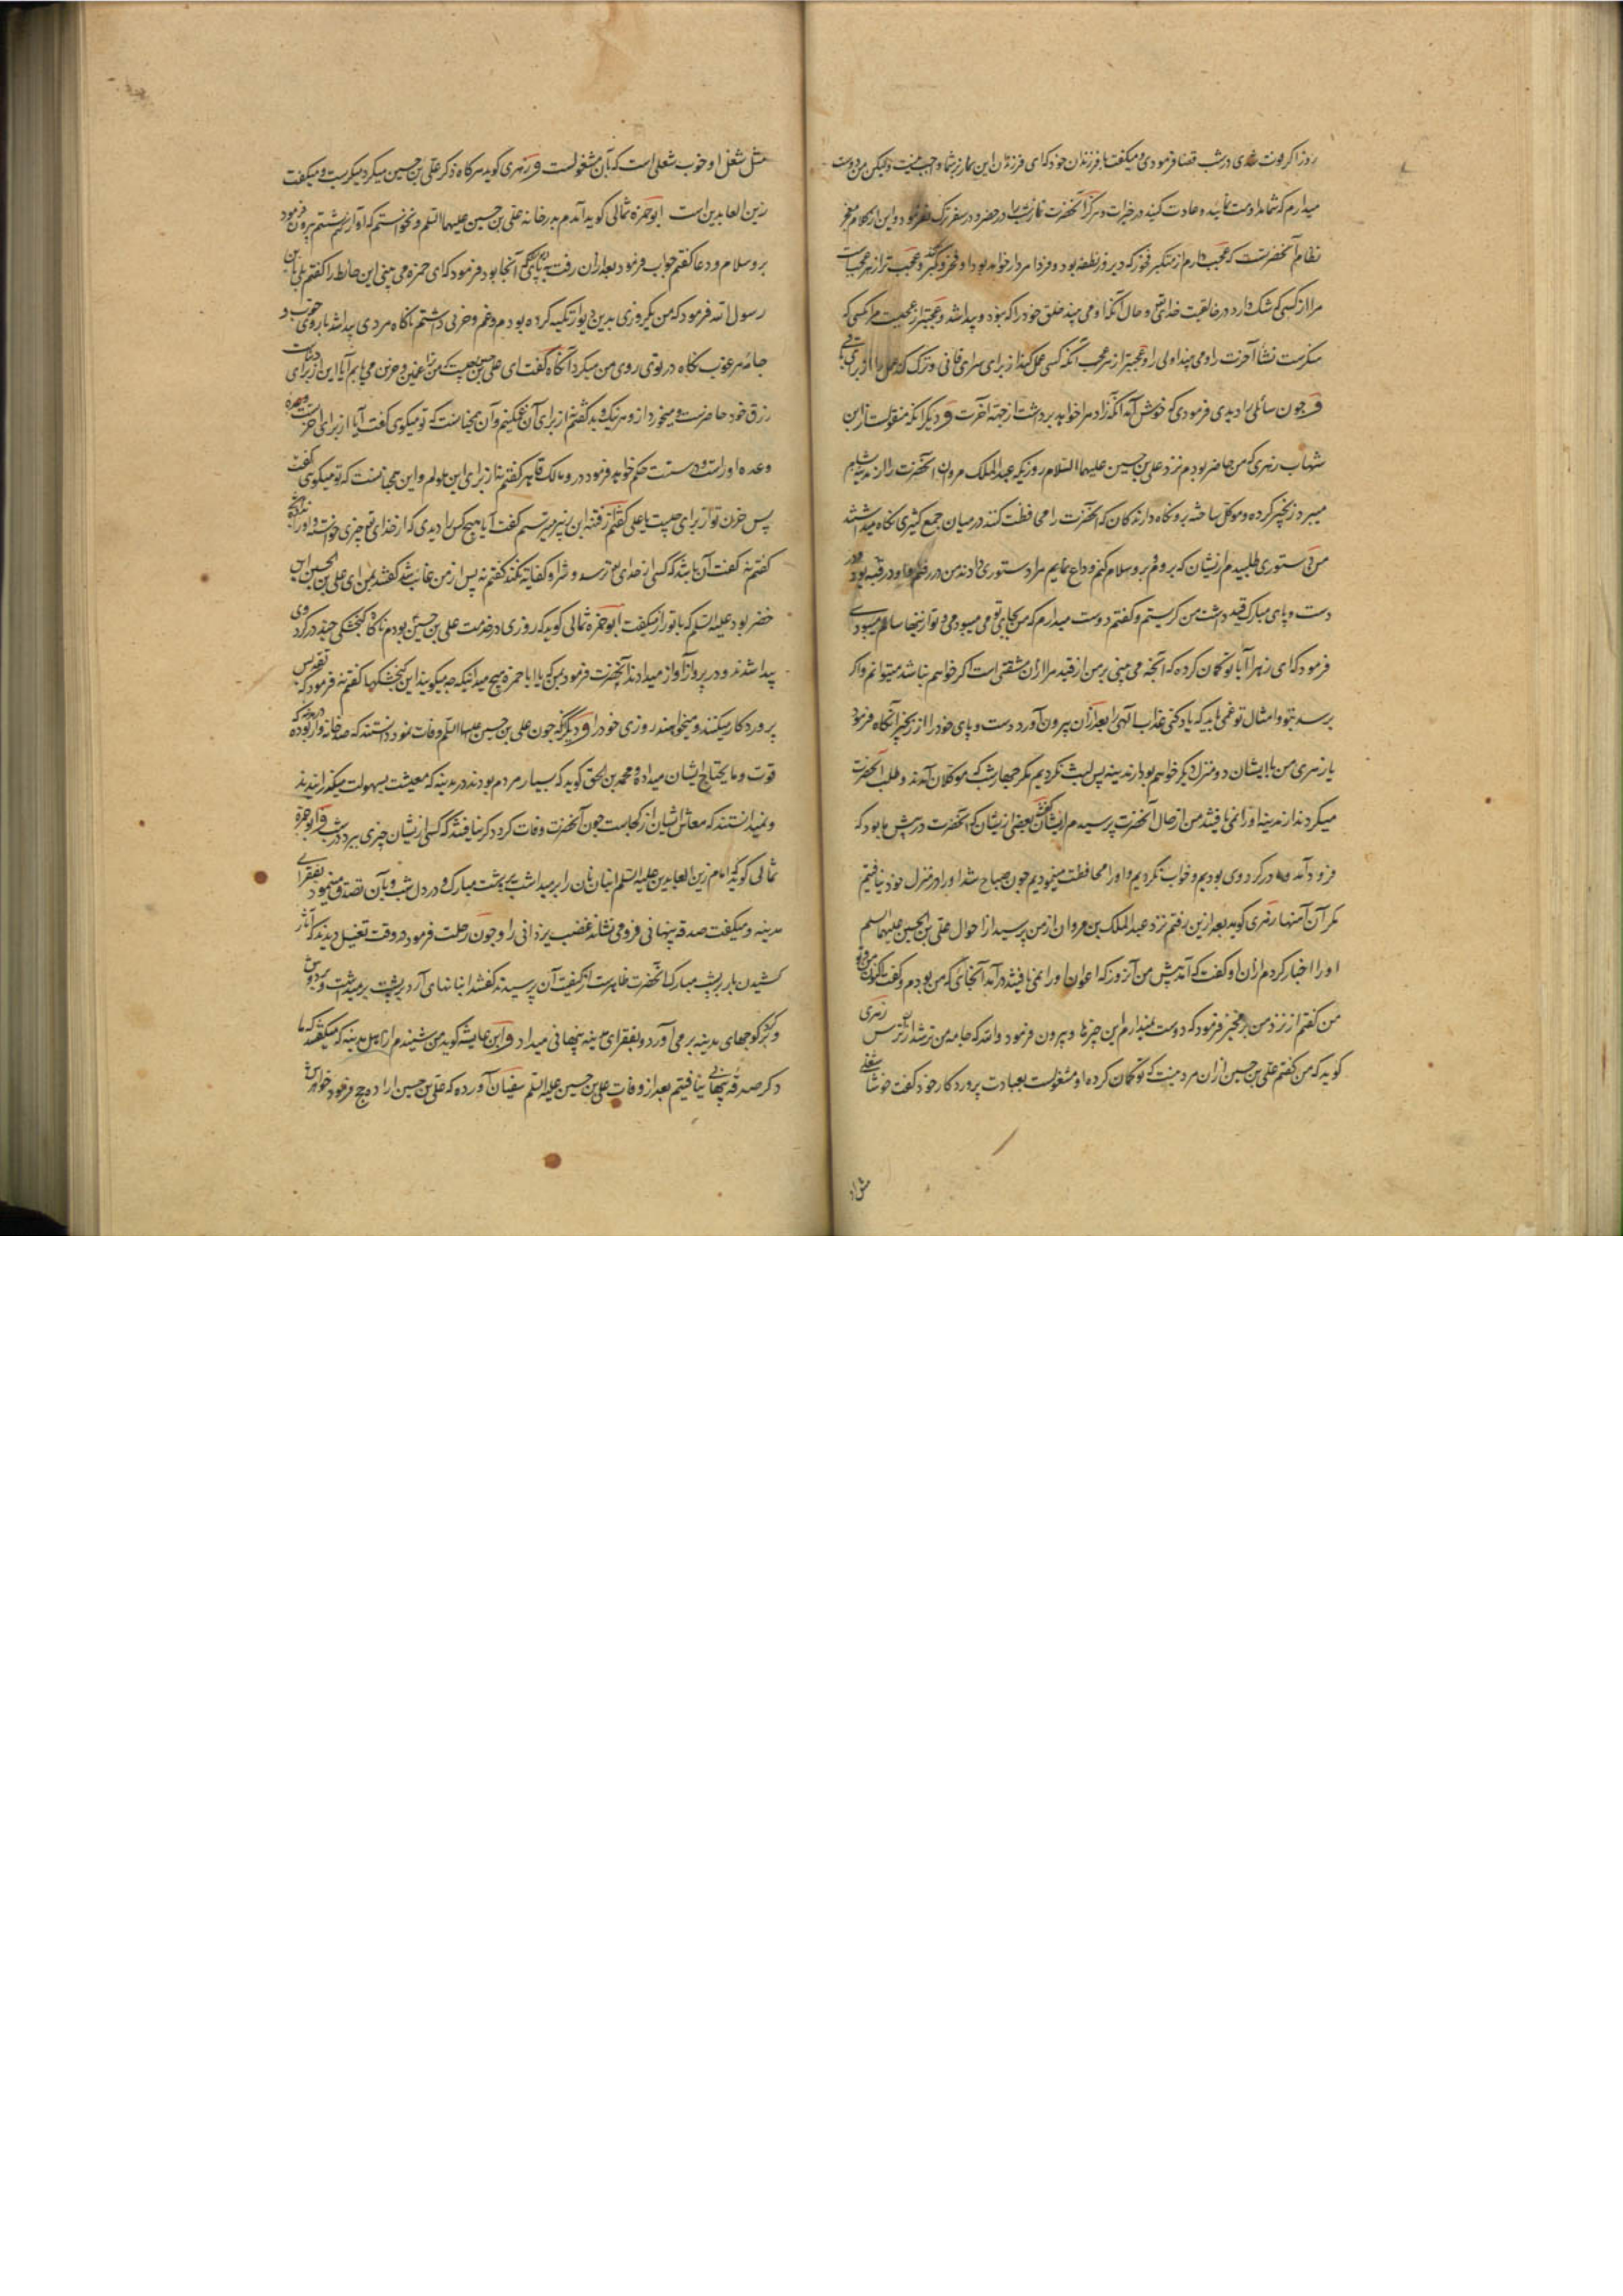 روز اگر فوت شدی در شب قضا فرمودی و میگفت با فرزندان خود که ای فرزندان این نماز بر شما واجب نیست ولیکن من دوست
میدارم که شما مداومت نمائید و عادت کنید در خیرات و هرگز آنحضرت نماز شب را در حضر و در سفر ترک نفرمود و این از کلام معجز
نظام آنحضرتست که عجب دارم از متکبر فخور که دیروز نطفه بود و فردا مردار خواهد بود او فخر و کبر کند و عجب تر از هر عجبیات
مرا از کسی که شک دارد در خالقیت خدایتعالی و حال آنکه او می بیند خلق خود را که نبود و پیدا شد و عجبتر از عجبیت مر آنکسی که
منکرست نشأ آخرت را و می بیند اولی را و عجبتر از هر عجب آنکه کسی عمل کند از برای سرای فانی و ترک کند عمل را از برای باقی
و چون سائلی را دیدی فرمودی که خوش آمد آنکه زاد مرا خواهد برداشت از جهة آخرت و دیگر آنکه منقولست از ابن
شهاب زهری که من حاضر بودم نزد علی بن حسین علیهما السلام روزیکه عبد الملک مروان آنحضرت را از مدینه بشام
میبرد زنجیر کرده و موکل ساخته برو نگاه دارندگان که آنحضرت را محافظت کنند در میان جمع کثیری نگاه میداشتند
من دستوری طلبیدم از ایشان که بروم و برو سلام کنم و وداع نمایم مرا دستوری دادند من در رفتم و او در قبه بود و در
دست و پای مبارک قید داشت من گریستم و گفتم دوست میدارم که من بجای تو می میبودمی و تو از اینها سالم میبودی
فرمود که ای زهری آیا تو گمان کرده که آنچه می بینی بر من از قید مرا از آن مشقتی است اگر خواهم نباشد میتوانم و اگر
برسد بتو و امثال تو غمی باید که یاد کنی عذاب الهی را بعد از آن بیرون آورد دست و پای خود را از زنجیر آنگاه فرمود
یا زهری من با ایشان دو منزل دیگر خواهم بود از مدینه پس لبث نکردیم مگر چهار شب که موکلان آمدند و طلب آنحضرت
میکردند از مدینه او را نمی یافتند من از حال آنحضرت پرسیدم از ایشان گفتند بعضی از ایشان که آنحضرت در پیش ما بود که
فرود آمد و ما در گرد وی بودیم و خواب نکردیم و او را محافظت مینمودیم چون صباح شد او را در منزل خود نیافتیم
مگر آن آهنها زهری گوید بعد از این رفتم نزد عبد الملک بن مروان از من پرسید از احوال علی بن الحسین علیهما السلم
او را اخبار کردم از آن او گفت که آمد پیش من آنروز که اعوان او را نمی یافتند در آمد آنجائی که من بودم و گفت
من گفتم از نزد من برمخیز فرمود که دوست نمیدارم این چیزها و بیرون فرمود و الله که جامه من تر شد از ترس زهری
گوید که من گفتم علی بن حسین از آن مرد نیست که تو گمان کرده او مشغولست بعبادت پروردگار خود گفت خوشا شغلی
مثل شغل او خوب شغلی است که بآن مشغولست و زهری گوید هرگاه ذکر علی بن حسین میکرد میگریست و میگفت
زین العابدین است ابو حمزه ثمالی گوید آمدم بدر خانه علی بن حسین علیهما السلم و نخواستم که آواز کنم نشستم بیرون فرمود
برو سلام و دعا گفتم جواب فرمود بعد از آن رفت بدیواری که آنجا بود فرمود که ای حمزه می بینی این حایط را گفتم بلی یا بن
رسول الله فرمود که من یکروزی بدین دیوار تکیه کرده بودم و غم و حزنی داشتم ناگاه مردی پیدا شد با روی خوب و
جامه مرغوب نگاه در توی روی من میکرد آنگاه گفت ای علی بن حسین چیست که من ترا غمین و حزین می یابم آیا این از برای دنیاست
رزق خود حاضرست و میخورد از و هر نیک و بد گفتم نه از برای آن غمگینم و آن همچنانست که تو میگوی گفت آیا از برای آخرتست
وعده او راست و درستست حکم خواهد فرمود درو مالک قاهر گفتم نه از برای این ملولم و این همچنانست که تو میگوی گفت
پس حزن تو از برای چیست یا علی گفتم از فتنه ابن زبیر میترسم گفت آیا هیچ کس را دیدی که از خدای تع چیزی خواست و او را نداده
گفتم نه گفت آن باشد که کسی از خدای تع ترسد و شر او کفایه نکند گفتم نه پس از من غایب شد گفتند بمن ای علی بن الحسین این
خضر بود علیه السلم که با تو راز میگفت ابو حمزه ثمالی گوید که روزی در خدمت علی بن حسین بودم ناگاه گنجشکی چند در گرد وی
پیدا شدند و در پرواز آواز میدادند آنحضرت فرمود بمن که یا ابا حمزه هیچ میدانی که چه میگویند این گنجشکها گفتم نه فرمود که تقدیس
پروردگار میکنند و میخواهند روزی خود را و دیگر آنکه چون علی بن حسین علیهما السلم وفات نمود دانستند که صد خانه وار بوده در مدینه که
قوت و مایحتاج ایشان میداده و محمد بن اسحق گوید که بسیار مردم بودند در مدینه که معیشت بسهولت میگذرانیدند
و نمیدانستند که معاش ایشان از کجاست چون آنحضرت وفات کرد دگر نیافتند که کسی از ایشان چیزی ببرد در شب و ابو حمزه
ثمالی گوید که امام زین العابدین علیه السلم انبان نان را بر میداشت بر پشت مبارک و در دل شب و بآن تصدق مینمود بفقرای
مدینه و میگفت صدقه پنهانی فرو می نشاند غضب یزدانی را و چون رحلت فرمود در وقت تغسیل دیدند که آثار
کشیدن بار بر پشت مبارک آنحضرت ظاهرست از کیفیت آن پرسیدند گفتند انبانهای آرد بر پشت بر میداشت و بر دوش
و بگرد کوچهای مدینه بر می آورد و بفقرای مدینه پنهانی میداد و ابن عایشه گوید من شنیدم از اهل مدینه که میگفتند که ما
دگر صدقه پنهانی نیافتیم بعد از وفات علی بن حسین علیه السلم سفیان آورده که علی بن حسین اراده حج فرمود خواهرش
مثل او